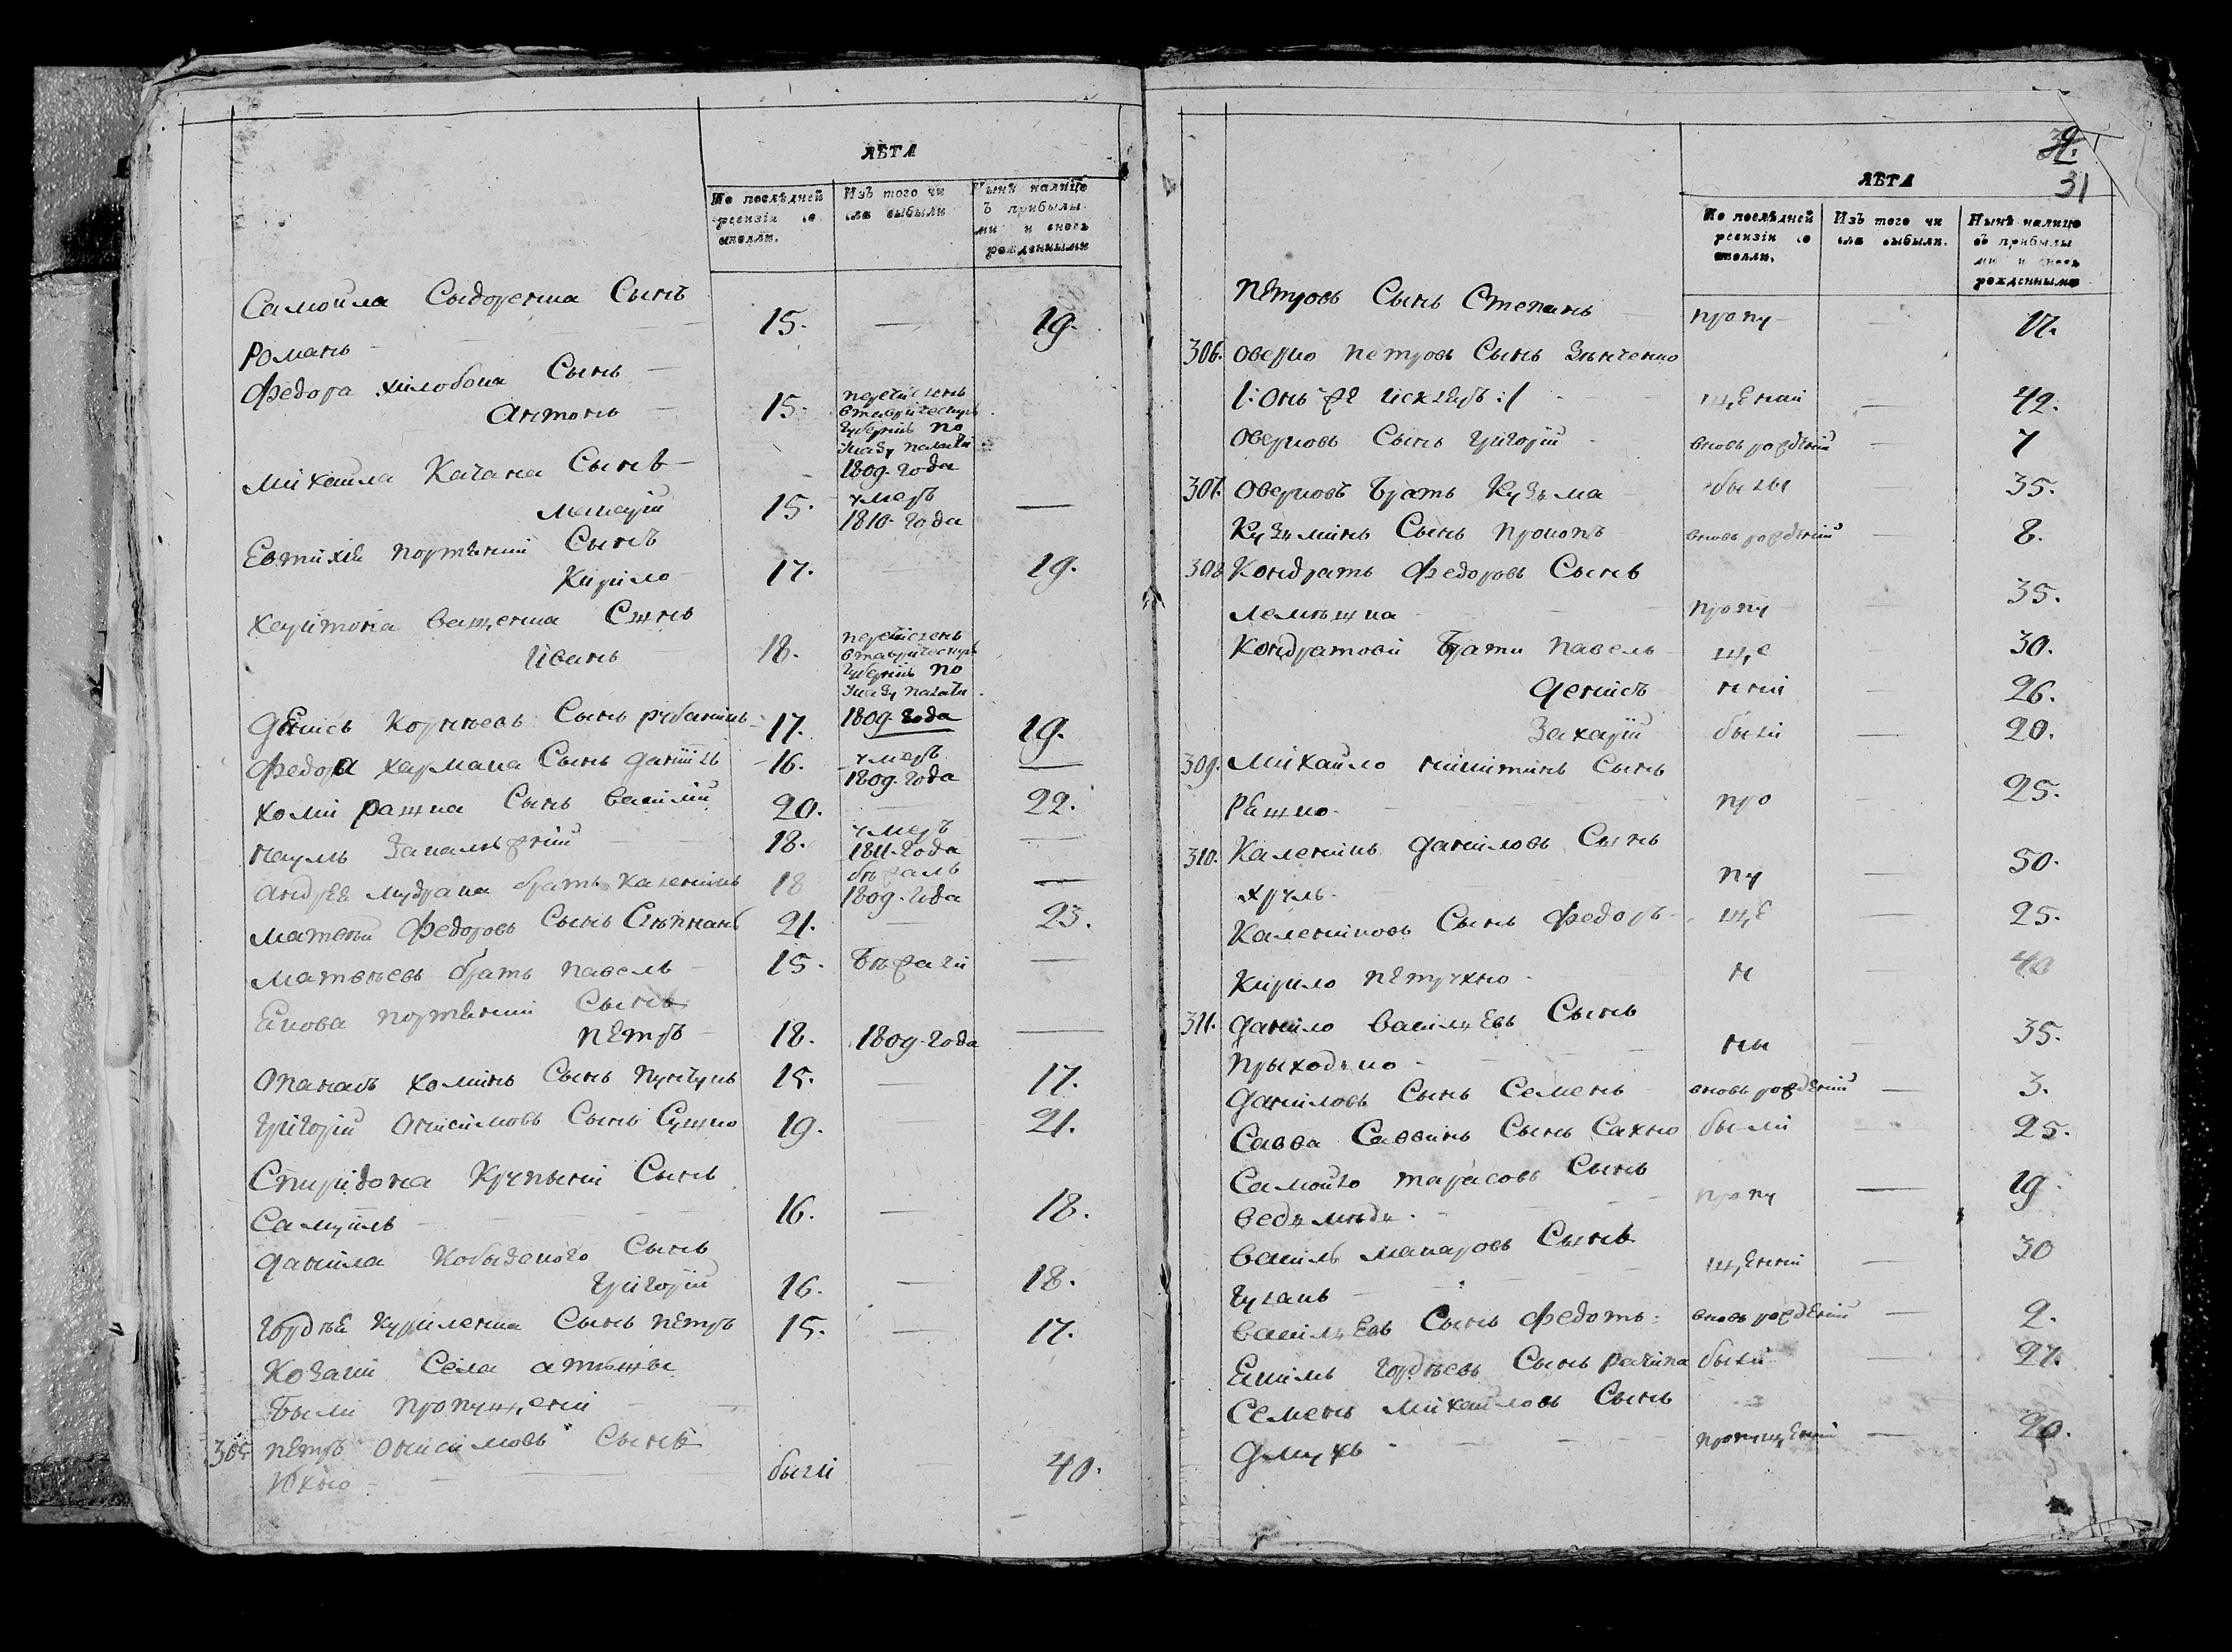 ЛѢТА
По послѣдней ревизіи состояли.
Изъ того числа выбыли
Нынѣ налицо съ прибылыми и вновь рожденными
Самойла Сыдоренка Сынъ
Романъ 15. — 19.
Федора Сынъ
Антонъ 15. перечисленъ в таврическую губернію по указу палати 1809. года
Михайла Качана Сынъ
15. умеръ 1810. года —
Евтихія Сынъ
Кирило 17. — 19.
Харитона Ващенка Сынъ
Иванъ 18. перечисленъ в таврическую губернію по указу палати 1809. года
Денисъ Корнѣевъ Сынъ 17. 19.
Федора Хармака Сынъ Данііль 16. умеръ 1809. года —
Хоми Ращка Сынъ Василій 20. — 22.
18. умеръ 1811. года —
Андрея Мудрака братъ Каленикъ 18 бѣжалъ 1809. года —
Матвѣй Федоровъ Сынъ 21. — 23.
Матвѣевъ братъ Павелъ 15. Бѣжали —
Сынъ
Петръ 18. 1809. года —
Опанасъ Хоминъ Сынъ 15. — 17.
Григорій Онисимовъ Сынъ Сушко 19. 21.
Спиридона Крупыни Сынъ
Самуилъ 16. — 18.
Данила Кобызкого Сынъ
Григорій 16. — 18.
Гордѣя Куриленка Сынъ Петръ 15. — 17.
Козаки Села
Были пропущени
305. Петръ Онисимовъ Сынъ
Юхно были 40.
31
ЛѢТА
По послѣдней ревизіи состояли.
Изъ того числа выбыли.
Нынѣ налицо съ прибылыми и вновь рожденными
Петровъ Сынъ Степанъ пропу — 17.
306. Оверко Петровъ Сынъ Зѣнченко
/: онъ же :/ щении — 42.
Оверковъ Сынъ Григорій вновь рожденій — 7
307. Оверковъ Братъ Кузьма были — 35.
Кузьминъ Сынъ Прокопъ вновь рожденій — 8.
308. Кондратъ Федоровъ Сынъ
Лемѣшка пропу — 35.
Кондратови Брати Павелъ ще — 30.
Денисъ нни — 26.
Захарій были — 20.
309. Михайло Никитинъ Сынъ
про 25.
310. Каленикъ Даниловъ Сынъ
Хруль пу — 50.
Калениковъ Сынъ Федоръ ще — 25.
Кирило Петрухно н 40
311. Данило Васильевъ Сынъ
Прыходько ни — 35.
Даниловъ Сынъ Семенъ вновь рожденій — 3.
Савва Саввинъ Сынъ Сахно были — 25.
Самойло Тарасовъ Сынъ
Ведьмѣдь пропу — 19.
Василь Макаровъ Сынъ
щенни — 30
Васильевъ Сынъ Федотъ вновь рожденій — 2.
Гордѣевъ Сынъ были — 27.
Семенъ Михайловъ Сынъ
пропущени — 20.